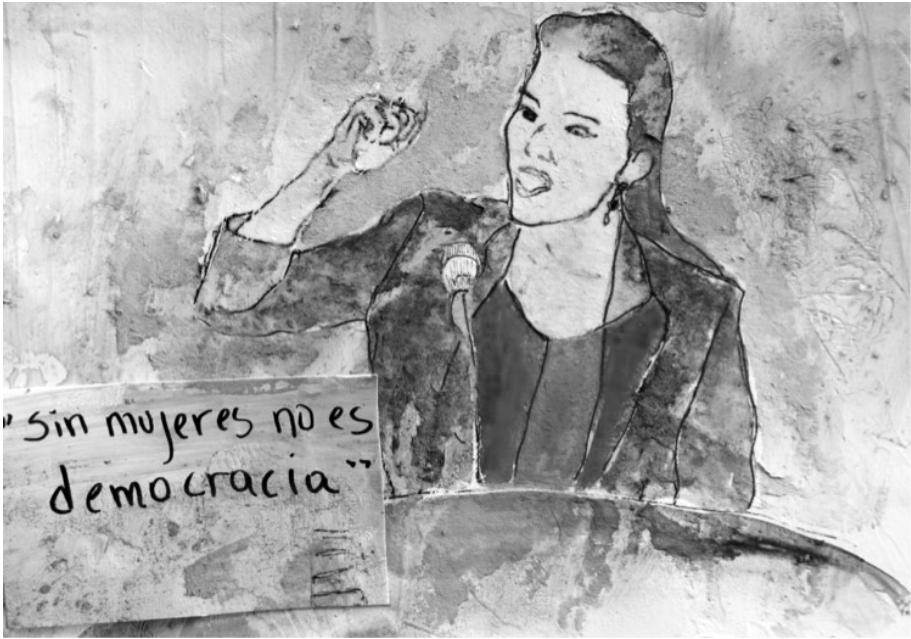 "sin mujeres no es
democracia"